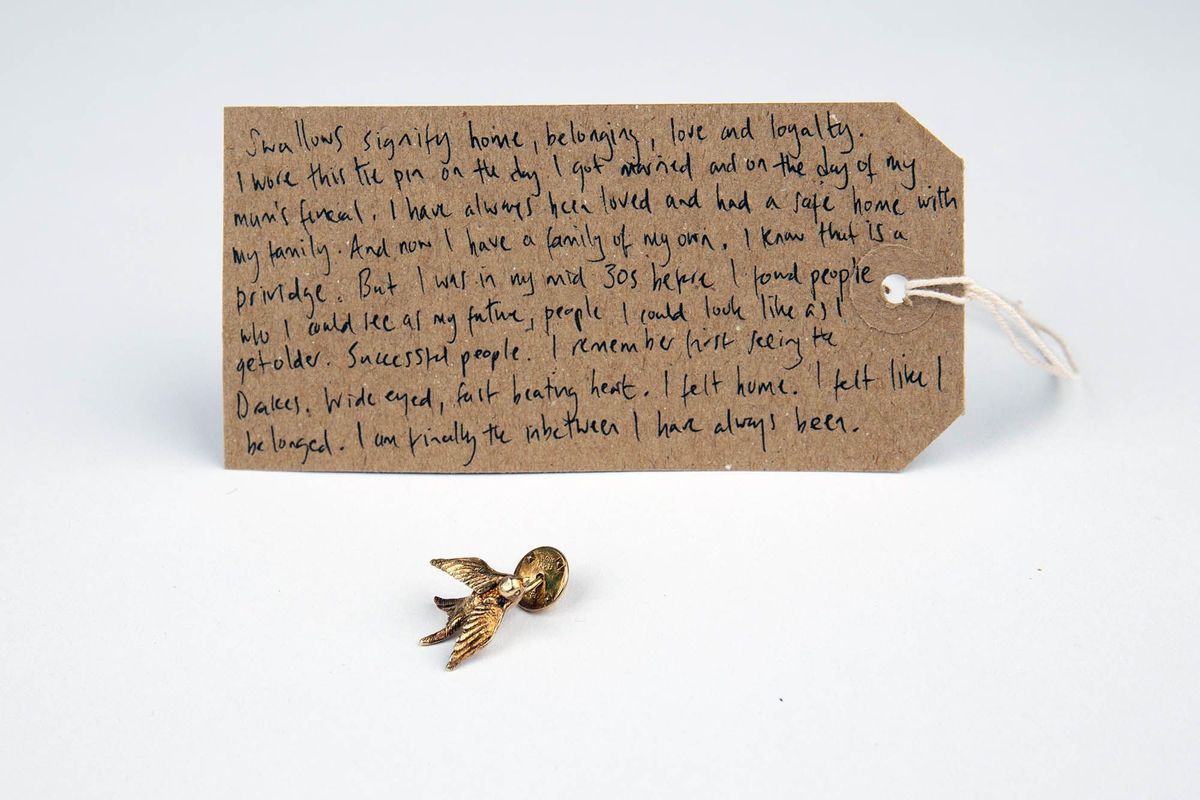 Swallows signify home, belonging, love and loyalty.
I wore this tie pin on the day I got married and on the day of my
mum's funeral. I have always been loved and had a safe home with
my family. And now I have a family of my own. I know that is a
privildge. But I was in my mid 30s before I found people
who I could see as my future, people I could look like as I
get older. Successful people. I remember first seeing the
Drakes. Wide eyed, fast beating heart. I felt home. I felt like I
belonged. I am finally the inbetween I have always been.